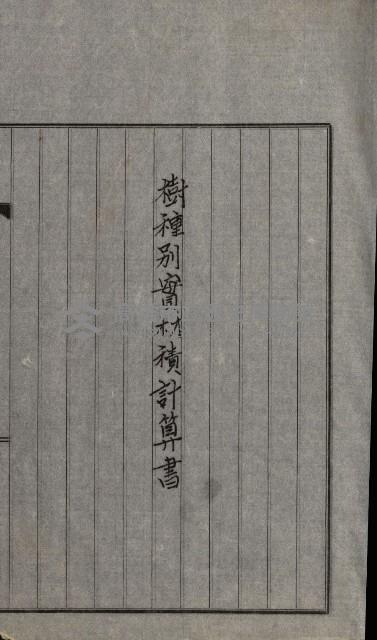 樹種別實材積計算書